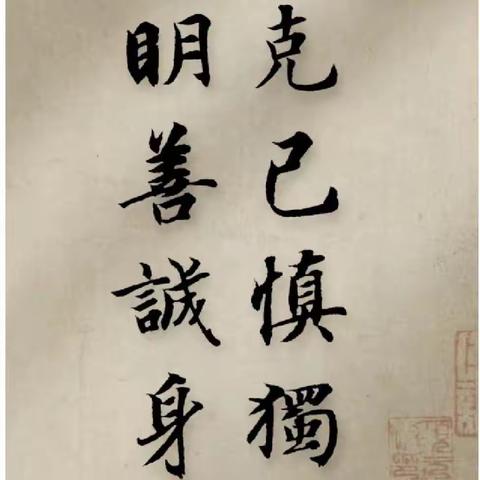 克己慎獨
明善誠身